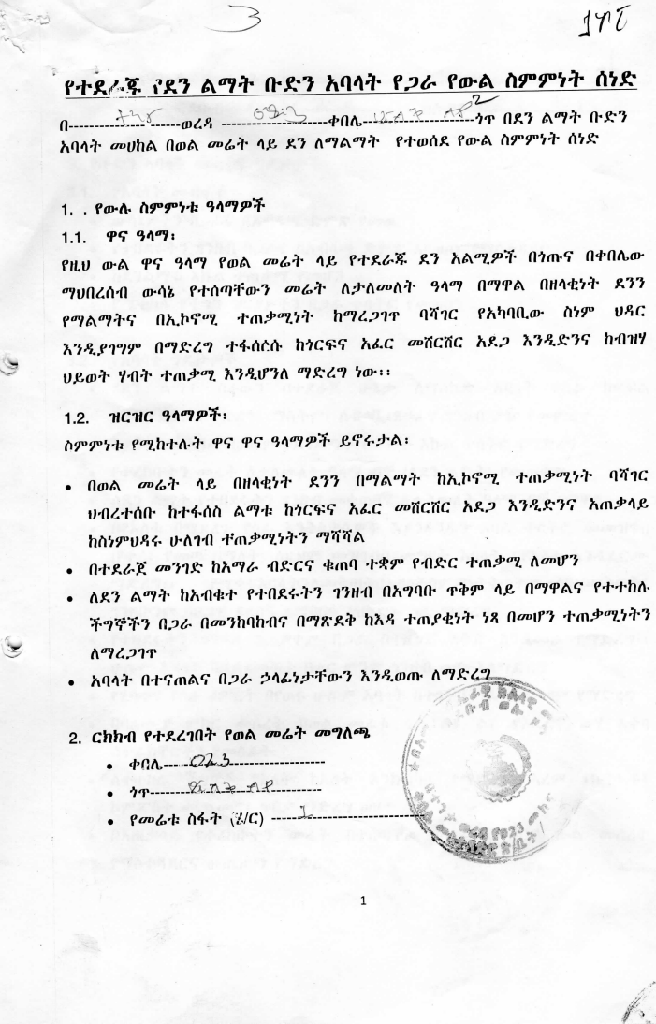 3
የተደራጁ የደን ልማት ቡድን አባላት የጋራ የውል ስምምነት ሰነድ
በ---------------------ወረዳ --------------------ቀበሌ---------------------ጎጥ በደን ልማት ቡድን
አባላት መሀከል በወል መሬት ላይ ደን ለማልማት የተወሰደ የውል ስምምነት ሰነድ
1. . የውሉ ስምምነቱ ዓላማዎች
1.1. ዋና ዓላማ፡
የዚህ ውል ዋና ዓላማ የወል መሬት ላይ የተደራጁ ደን አልሚዎች በጎጡና በቀበሌው
ማህበረሰብ ውሳኔ የተሰጣቸውን መሬት ለታለመለት ዓላማ በማዋል በዘላቂነት ደንን
የማልማትና በኢኮኖሚ ተጠቃሚነት ከማረጋገጥ ባሻገር የአካባቢው ስነም ህዳር
እንዲያገግም በማድረግ ተፋሰሱ ከጎርፍና አፈር መሸርሸር አደጋ እንዲድንና ከብዝሃ
ህይወት ሃብት ተጠቃሚ እንዲሆንለ ማድረግ ነው፡፡
1.2. ዝርዝር ዓላማዎች፡
ስምምነቱ የሚከተሉት ዋና ዋና ዓላማዎች ይኖሩታል፡
• በወል መሬት ላይ በዘላቂነት ደንን በማልማት ከኢኮኖሚ ተጠቃሚነት ባሻገር
ህብረተሰቡ ከተፋሰስ ልማቱ ከጎርፍና አፈር መሸርሸር አደጋ እንዲድንና አጠቃላይ
ከስነምህዳሩ ሁለገብ ተጠቃሚነትን ማሻሻል
• በተደራጀ መንገድ ከአማራ ብድርና ቁጠባ ተቋም የብድር ተጠቃሚ ለመሆን
• ለደን ልማት ከአብቁተ የተበደሩትን ገንዘብ በአግባቡ ጥቅም ላይ በማዋልና የተተከሉ
ችግኞችን በጋራ በመንከባከብና በማጽደቅ ከእዳ ተጠያቂነት ነጻ በመሆን ተጠቃሚነትን
ለማረጋገጥ
• አባላት በተናጠልና በጋራ ኃላፊነታቸውን እንዲወጡ ለማድረግ
2. ርክክብ የተደረገበት የወል መሬት መግለጫ
• ቀበሌ--------------------
• ጎጥ---------------------
• የመሬቱ ስፋት (ሄ/ር) ------1--------------
1